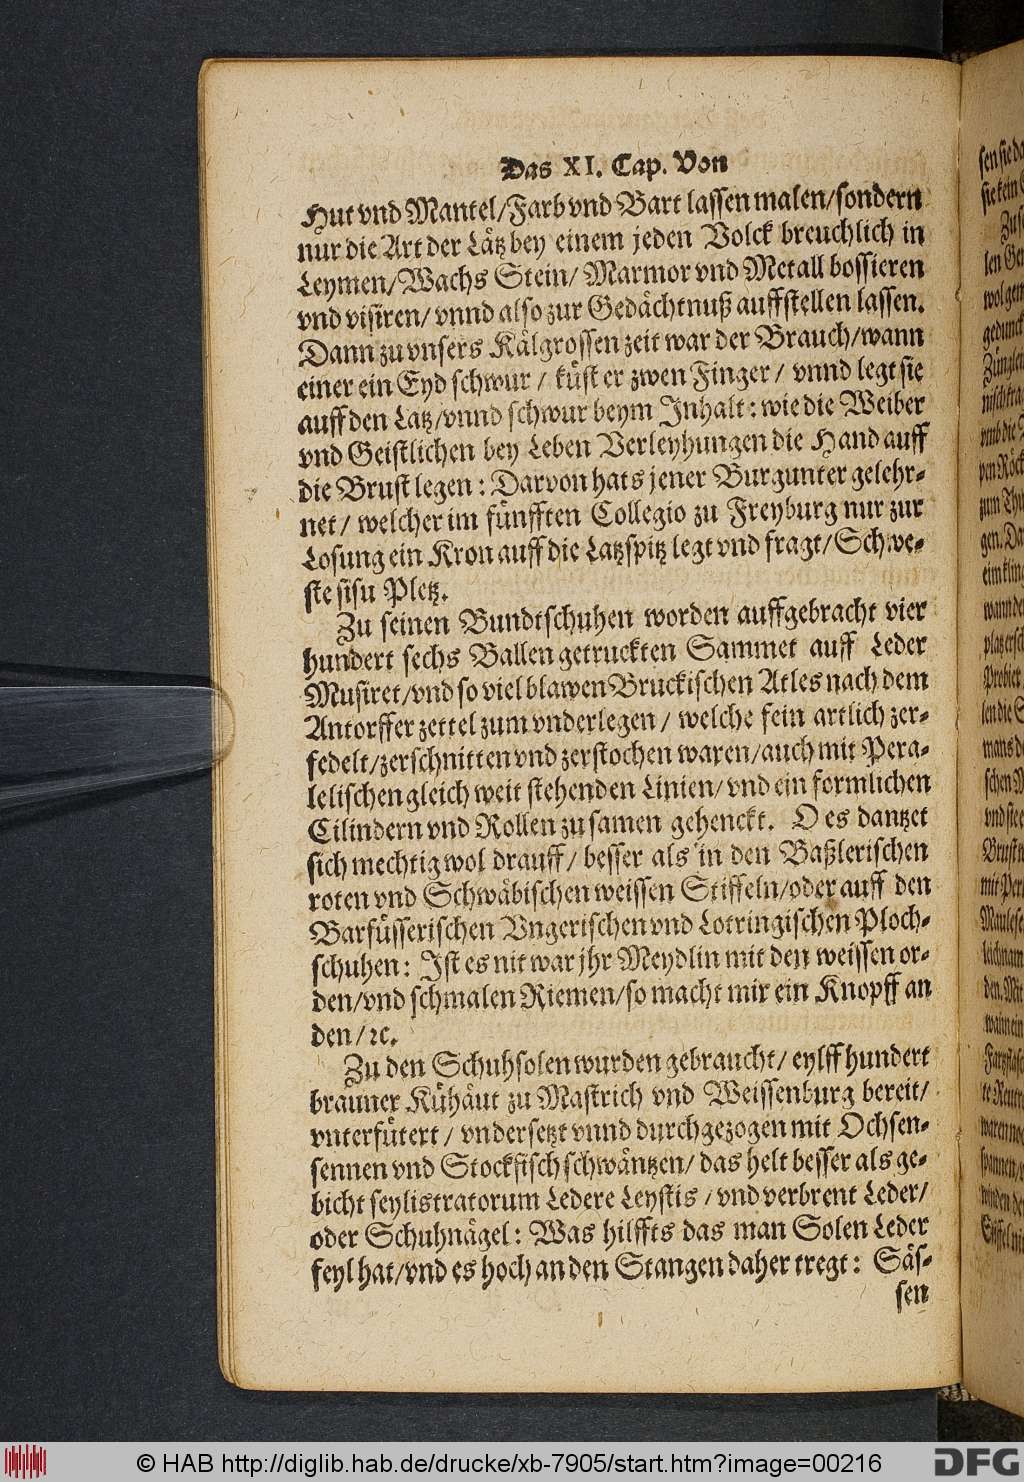 Das XI. Cap. Von
Hut vnd Mantel/Farb vnd Bart lassen malen/sondern
nur die Art der Lätz bey einem jeden Volck breuchlich in
Leymen/Wachs Stein/ Marmor vnd Metall bossieren
vnd visiren/ vnnd also zur Gedächtnuß auffstellen lassen.
Dann zu vnsers Kälgrossen zeit war der Brauch/wann
einer ein Eyd schwur / küst er zwen Finger / vnnd legt sie
auff den Latz/vnnd schwur beym Inhalt: wie die Weiber
vnd Geistlichen bey Leben Verleyhungen die Hand auff
die Brust legen: Darvon hats jener Burgunter gelehr-
net / welcher im fünfften Collegio zu Freyburg nur zur
Losung ein Kron auff die Latzspitz legt vnd fragt/Schwe-
ste sisu Pletz.
Zu seinen Bundtschuhen worden auffgebracht vier
hundert sechs Ballen getruckten Sammet auff Leder
Musiret/vnd so viel blawen Bruckischen Atles nach dem
Antorffer zettel zum vnderlegen / welche fein artlich zer-
fedelt/zerschnitten vnd zerstochen waren/auch mit Pera-
lelischen gleich weit stehenden Linien/ vnd ein formlichen
Cilindern vnd Rollen zusamen gehenckt. O es dantzet
sich mechtig wol drauff/ besser als in den Baßlerischen
roten vnd Schwäbischen weissen Stiffeln/oder auff den
Barfüsserischen Vngerischen vnd Lotringischen Ploch-
schuhen: Ist es nit war jhr Meydlin mit den weissen or-
den/vnd schmalen Riemen/so macht mir ein Knopff an
den/ ꝛc.
Zu den Schuhsolen wurden gebraucht/ eylff hundert
brauner Kühäut zu Mastrich vnd Weissenburg bereit/
vnterfütert / vndersetzt vnnd durchgezogen mit Ochsen-
sennen vnd Stockfisch schwäntzen/ das helt besser als ge-
bicht seylistratorum Ledere Leystis / vnd verbrent Leder/
oder Schuhnägel: Was hilffts das man Solen Leder
feyl hat/vnd es hoch an den Stangen daher tregt: Säs-
sen
© HAB http://diglib.hab.de/drucke/xb-7905/start.htm?image=00216
DFG